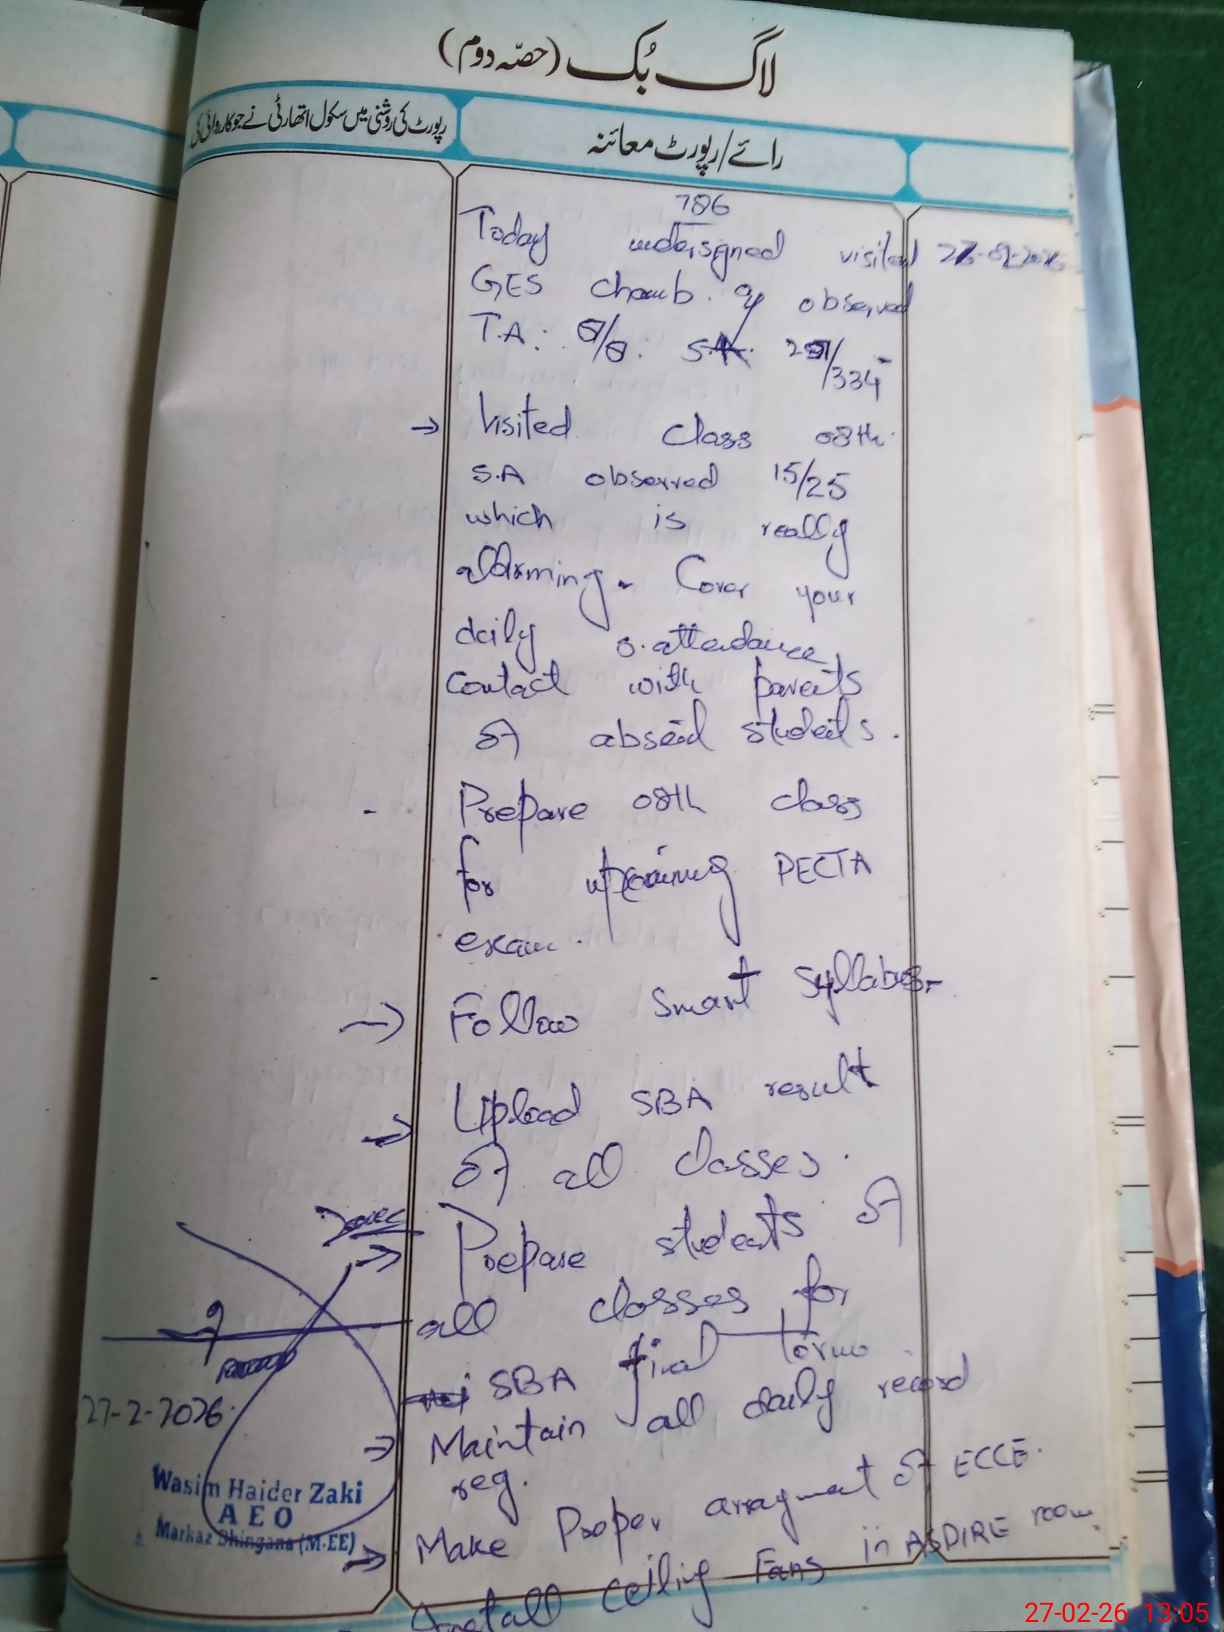 لاگ بُک (حصّہ دوم)
رپورٹ کی روشنی میں سکول اتھارٹی نے جو کاروائی کی
رائے/رپورٹ معائنہ
786
Today undersigned visited
GES Chamb. observed
T.A: S.A. /334
→ Visited class 08th.
S.A observed 15/25
which is really
allarming. Cover your
daily s.attendance,
contact with parents
of absent students.
- Prepare 08th class
for upcoming PECTA
exam.
→ Follow smart syllabus.
→ Upload SBA result
of all classes.
→ Prepare students of
all classes for
SBA final term.
→ Maintain all daily record
reg.
→ Make Proper arrayment of ECCE.
Install ceiling Fans in ASPIRE room.
27-2-2026.
Wasim Haider Zaki
AEO
Markaz Bhingana (M-EE)
27-02-26 13:05